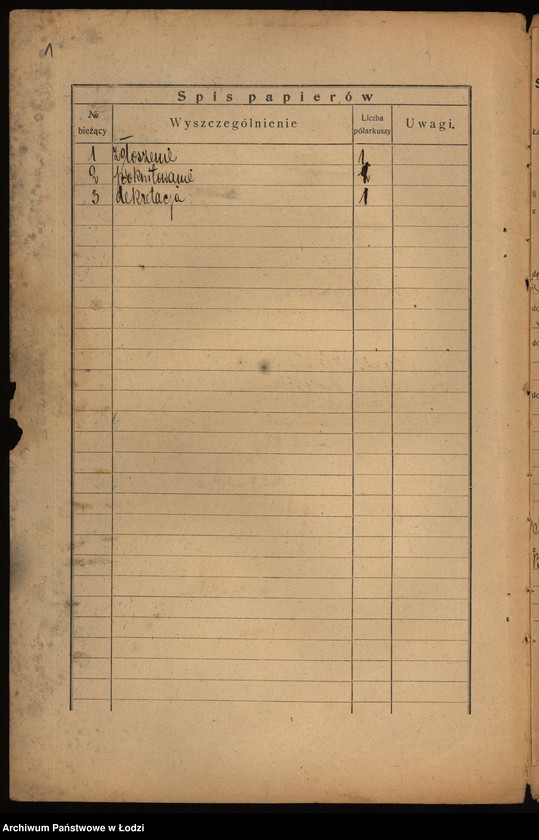 1
Spis papierów
№ bieżący Wyszczególnienie Liczba półarkuszy Uwagi.
1 zgłoszenie 1
2
3 dekretacja 1
Archiwum Państwowe w Łodzi